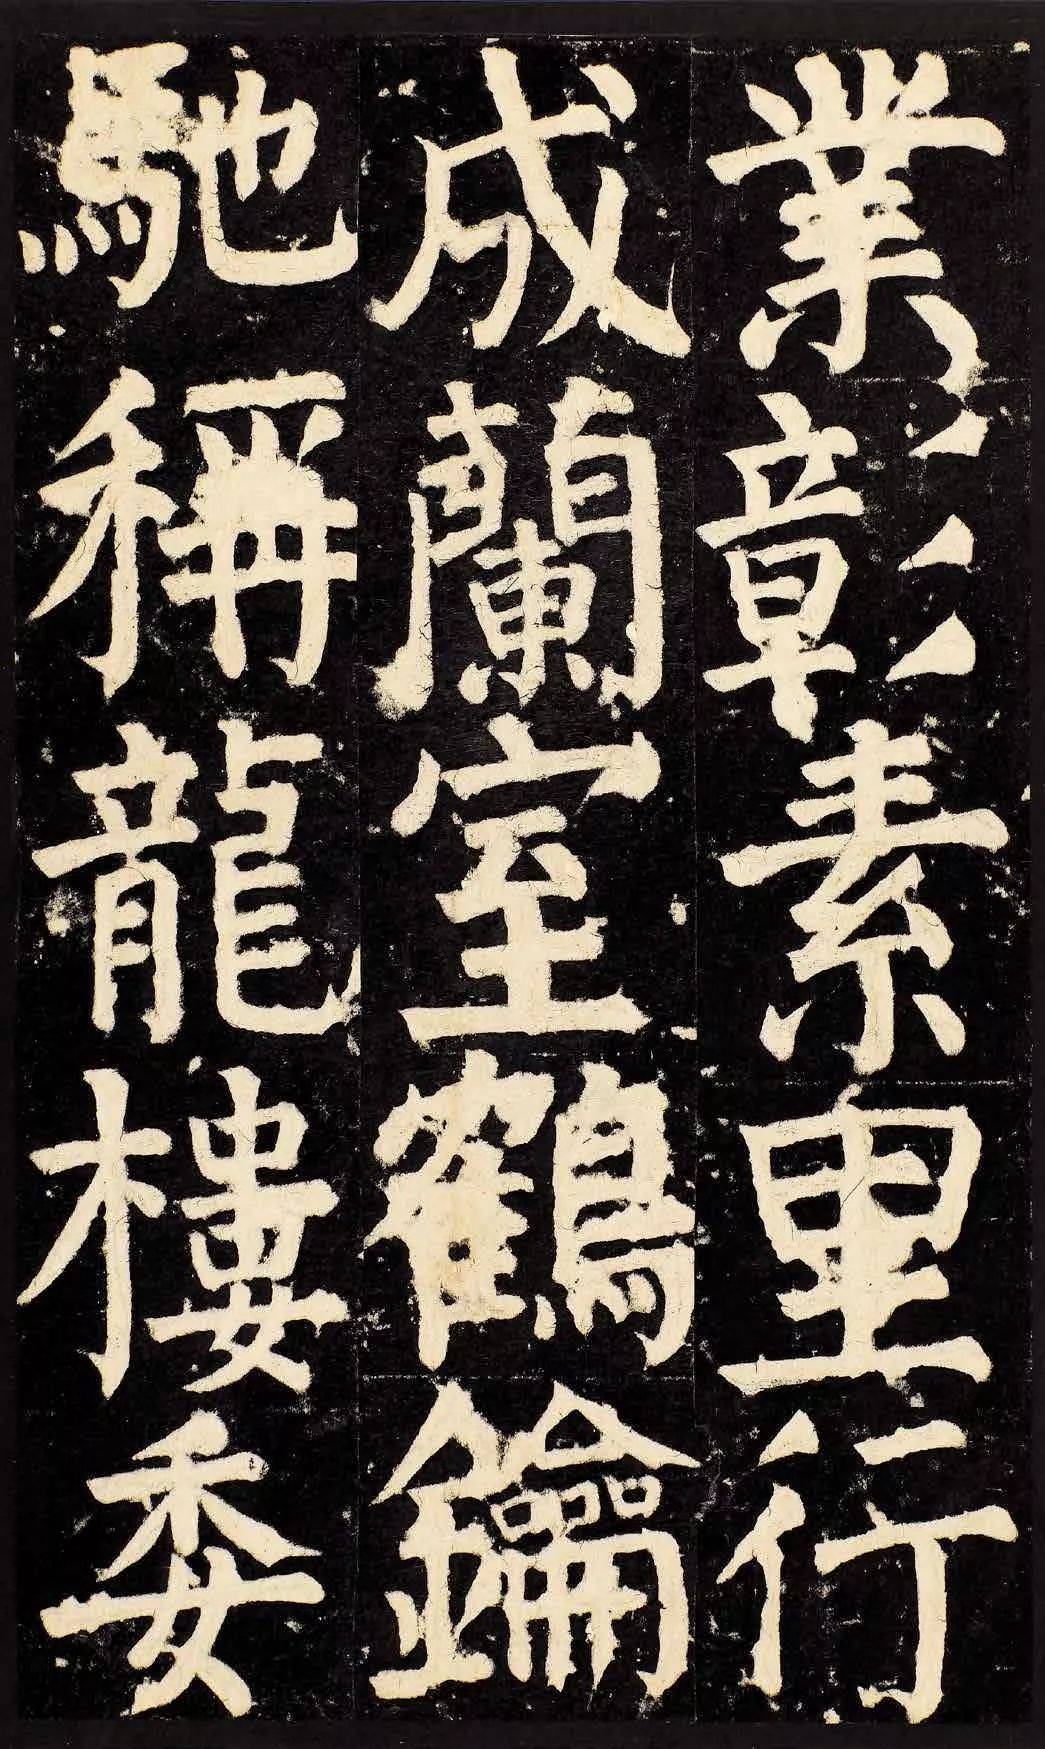 業彰素里行
成蘭室鶴鑰
馳稱龍樓委